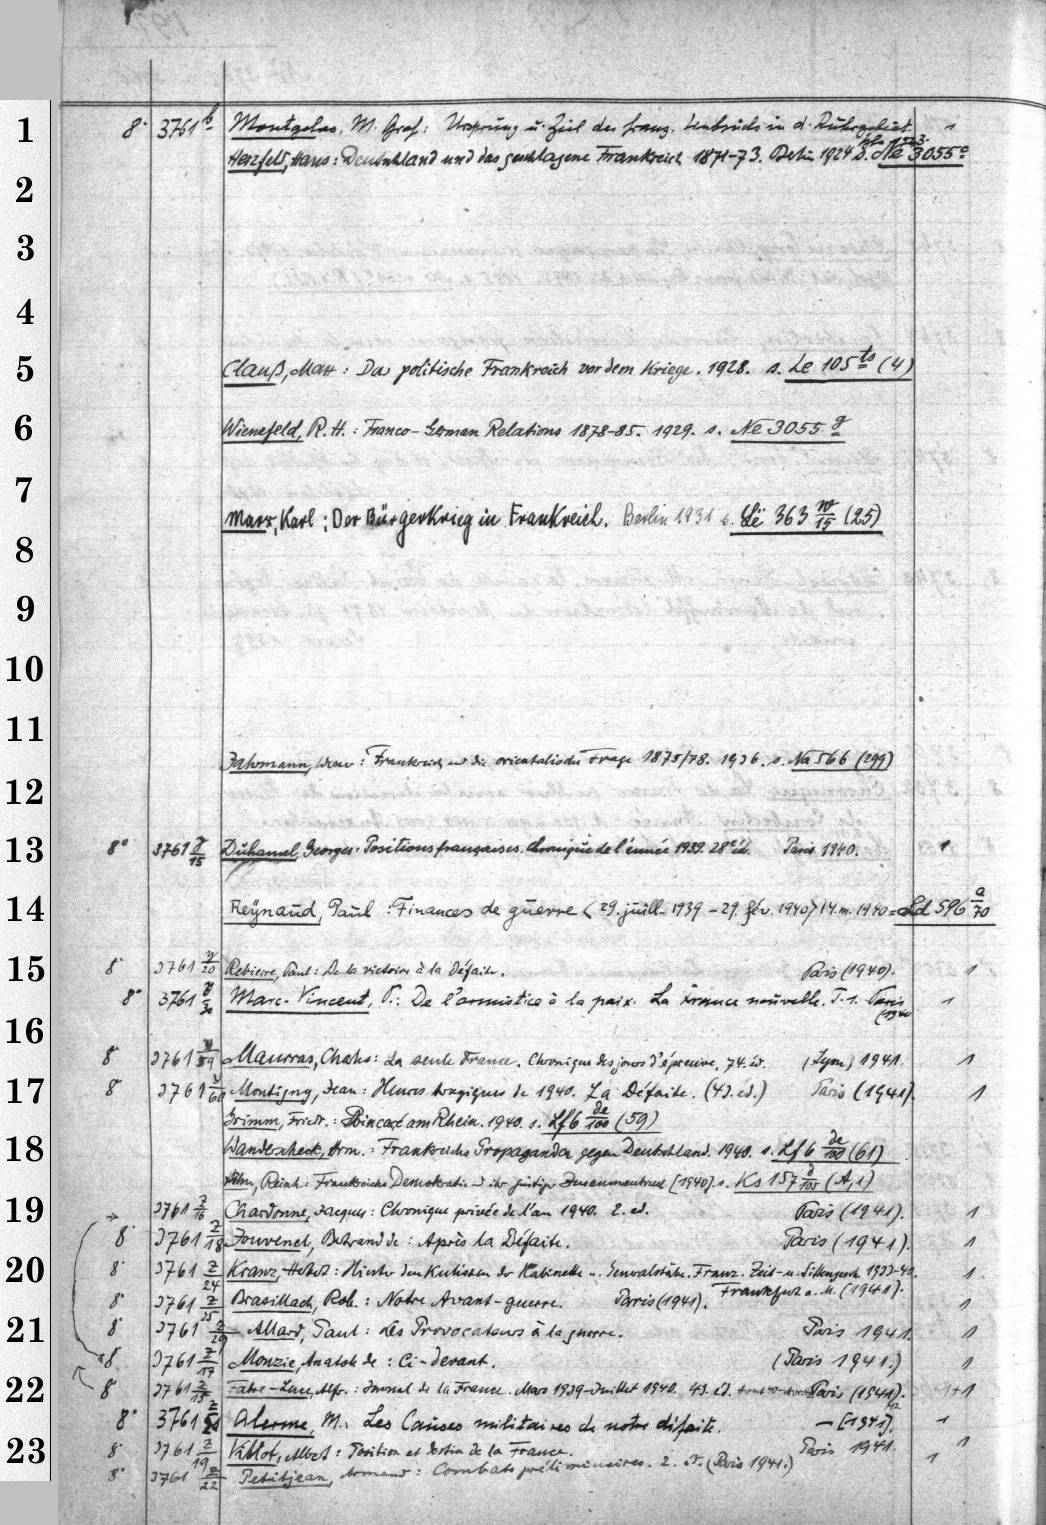 1 8° 3761 b Montgelas, M. Graf: Ursprung u. Ziel des franz. Einbruchs in d. Ruhrgebiet. 1
Herzfeld, Hans: Deutschland und das geschlagene Frankreich 1871-73. Berlin 1924 s. Ne 3055 e
2
3
4
5 Clauß, Max: Das politische Frankreich vor dem Kriege. 1928. s. Le 105 ts (4)
6 Wienefeld, R. H.: Franco-German Relations 1878-85. 1929. s. Ne 3055 g
7
Marx, Karl: Der Bürgerkrieg in Frankreich. Berlin 1931 s. Lë 363 w/15 (25)
8
9
10
11
Fahrmann, : Frankreich und die orientalische Frage 1875/78. 1936. s. Na 566 (299)
12
13 8° 3761 y/15 Duhamel, Georges: Positions françaises. Chronique de l'année 1939. 28e éd. Paris 1940. 1
14 Reynaud, Paul: Finances de guerre (29. juill. 1939 - 29. fév. 1940) 14. m. 1940 = Ld 596 a/70
15 8° 3761 y/20 Rebierre, Paul: De la victoire à la défaite. Paris (1940). 1
8° 3761 y/30 Marc-Vincent, P.: De l'armistice à la paix. La France nouvelle. T. 1. Paris (1940 1
16
8° 3761 y/59 Maurras, Charles: La seule France. Chronique des jours d'épreuve. 74. éd. (Lyon) 1941. 1
17 8° 3761 y/60 Montigny, Jean: Heures tragiques de 1940. La Défaite. (43. ed.) Paris (1941). 1
Grimm, Friedr.: Poincaré am Rhein. 1940. s. Lf 6 de/100 (59)
18 Wanderscheck, Herm.: Frankreichs Propaganda gegen Deutschland. 1940. s. Lf 6 de/100 (61)
, Reinh.: Frankreichs Demokratie u. ihr geistiger Zusammenbruch [1940]. s. Ks 157 d/105 (A, 1)
19 3761 z/16 Chardonne, Jacques: Chronique privée de l'an 1940. 2. ed. Paris (1941). 1
8° 3761 z/18 Jouvenel, Bertrand de: Après la Défaite. Paris (1941). 1
20 8° 3761 z/24 Kranz, Herbert: Hinter den Kulissen der Kabinette u. Generalstäbe. Franz. Zeit- u. Sittengesch. 1933-40. 1.
Frankfurt a. M. (1941).
8° 3761 z/25 Brasillach, Rob.: Notre Avant-guerre. Paris (1941). 1
21 8° 3761 z/29 Allard, Paul: Les Provocateurs à la guerre. Paris 1941. 1
8° 3761 z/17 Monzie, Anatole de: Ci-devant. (Paris 1941.) 1
22 8° 3761 z/15 Fabre-Luce, Alfr.: Journal de la France. Mars 1939-Juillet 1940. 43. éd. Paris (1941). 1+1
8° 3761 Alerme, M.: Les Causes militaires de notre défaite. — [1941]. 1
23 8° 3761 z/19 , Albert: Position et destin de la France. Paris 1941. 1
8° 3761 z/22 Petitjean, Armand: Combats préliminaires. 2. éd. (Paris 1941.) 1